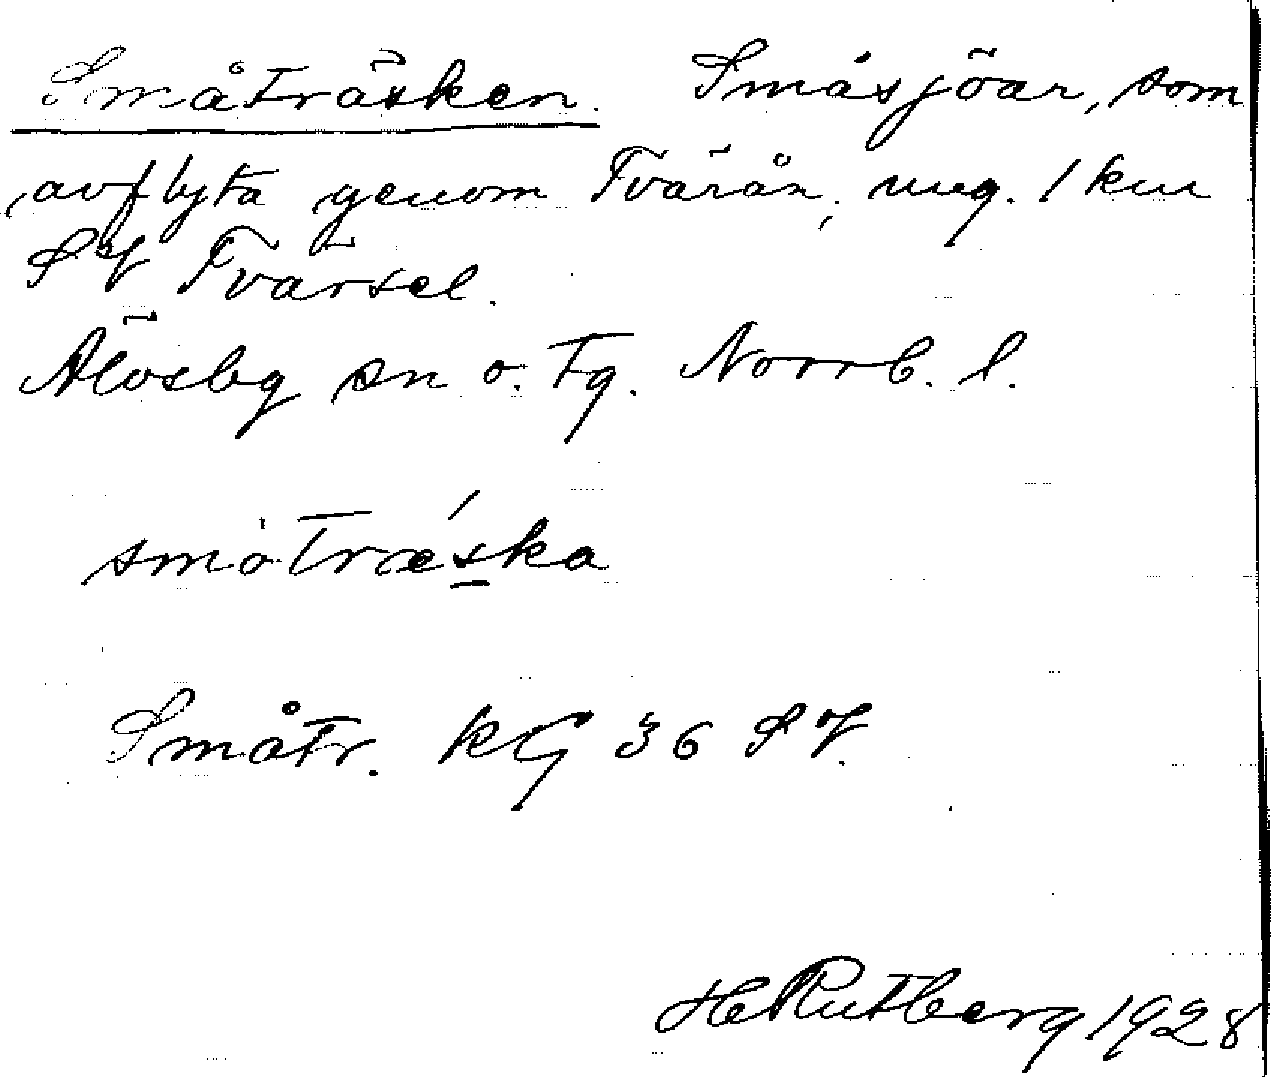 Småträsken. Småsjöar, som
avflyta genom Tvärån, ung. 1 km
SV Tvärsel.
Älvsby sn o. tg. Norrb. l.
småtræ´ska
Småtr. KG 36 SV.
HRutberg 1928